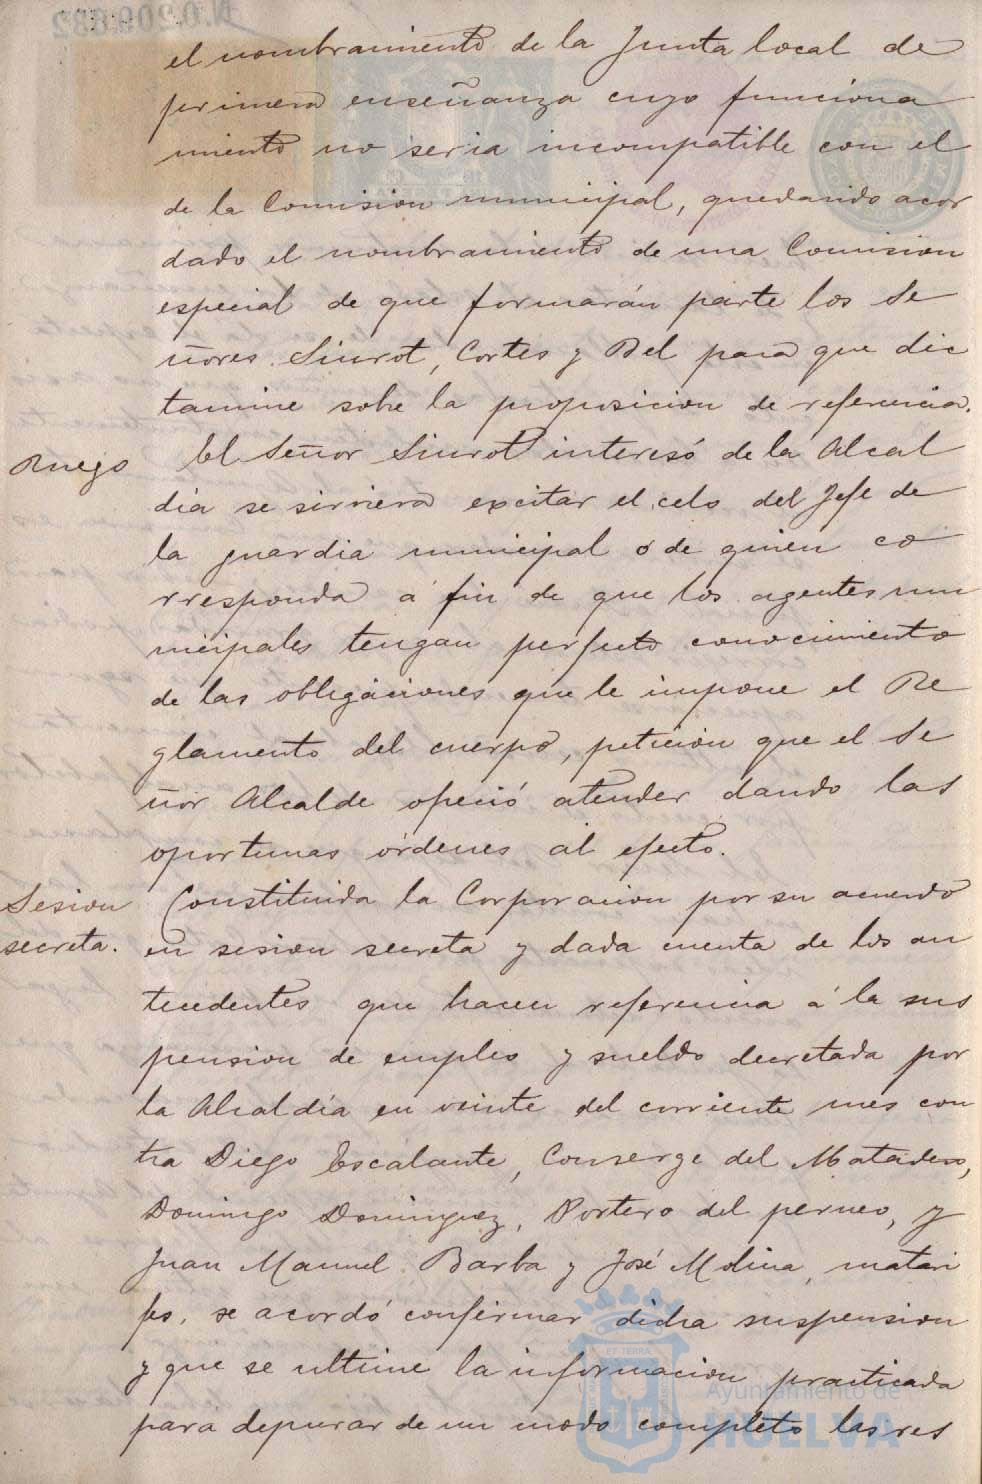 el nombramiento de la Junta local de
primera enseñanza cuyo funciona
miento no seria incompatible con el
de la Comision municipal, quedando acor
dado el nombramiento de una Comision
especial de que formarán parte los Se
ñores Siurot, Cortes y Bel para que dic
tamine sobre la proposicion de referencia.
Ruego
El Señor Siurot interesó de la Alcal
dia se sirviera excitar el celo del Jefe de
la guardia municipal ó de quien co
rresponda á fin de que los agentes mu
nicipales tengan perfecto conocimiento
de las obligaciones que le impone el Re
glamento del cuerpo, peticion que el Se
ñor Alcalde ofreció atender dando las
oportunas órdenes al efecto.
Sesion
secreta.
Constituida la Corporacion por su acuerdo
en sesion secreta y dada cuenta de los an
tecedentes que hacen referencia á la sus
pension de empleo y sueldo decretada por
la Alcaldía en veinte del corriente mes con
tra Diego Escalante, Conserge del Matadero,
Domingo Dominguez, Portero del perneo, y
Juan Manuel Barba y José Molina, matari
fes, se acordó confirmar dicha suspension
y que se ultime la informacion practicada
para depurar de un modo completo las res
ET TERRA
Ayuntamiento de
HUELVA